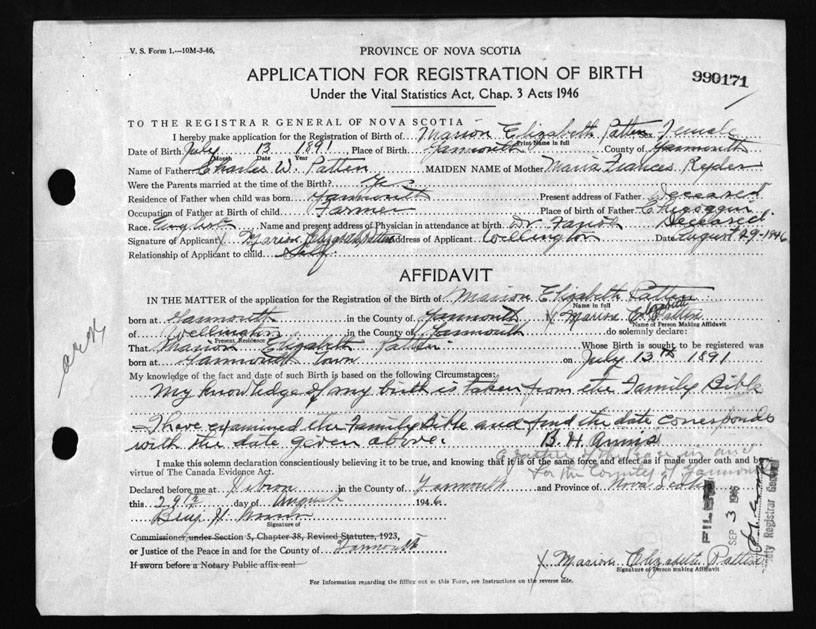 V. S. Form 1.—10M-3-46.
PROVINCE OF NOVA SCOTIA
APPLICATION FOR REGISTRATION OF BIRTH
990171
Under the Vital Statistics Act, Chap. 3 Acts 1946
TO THE REGISTRAR GENERAL OF NOVA SCOTIA
I hereby make application for the Registration of Birth of Marion Elizabeth Patten Sex Female
Print Name in full
Date of Birth July 13 1891 Place of Birth Yarmouth County of Yarmouth
Month Date Year
Name of Father Charles W. Patten MAIDEN NAME of Mother Maria Frances Ryder
Were the Parents married at the time of the Birth? Yes
Residence of Father when child was born Yarmouth Present address of Father Deceased
Occupation of Father at Birth of child Farmer Place of Birth of Father Chegoggin
Race English Name and present address of Physician in attendance at birth. Dr. Deceased
Signature of Applicant X Marion Elizabeth Patten Address of Applicant Wellington Date August 29-1946
Relationship of Applicant to child Self
AFFIDAVIT
IN THE MATTER of the application for the Registration of the Birth of Marion Elizabeth Patten
Name in full
born at Yarmouth in the County of Yarmouth X Marion Elizabeth Patten
Name of Person Making Affidavit
of Wellington in the County of Yarmouth do solemnly declare:
Present Residence
That Marion Elizabeth Patten Whose Birth is sought to be registered was
born at Yarmouth Town on July 13th 1891
My knowledge of the fact and date of such Birth is based on the following Circumstances:
My knowledge of my birth is taken from the Family Bible
I have examined the Family Bible and find the date corresponds
with the date given above. B. H.
A Justice of the Peace in and
for the County of Yarmouth
I make this solemn declaration conscientiously believing it to be true, and knowing that it is of the same force and effect as if made under oath and by
virtue of The Canada Evidence Act.
Declared before me at Hebron in the County of Yarmouth and Province of Nova Scotia
this 29th day of August 1946
Benj H.
Signature of
Commissioner under Section 5, Chapter 38, Revised Statutes, 1923,
or Justice of the Peace in and for the County of Yarmouth
If sworn before a Notary Public affix seal
X Marion Elizabeth Patten
Signature of Person making Affidavit
For Information regarding the filling out of this Form, see Instructions on the reverse side.
FILED
SEP 3 1946
Deputy Registrar General